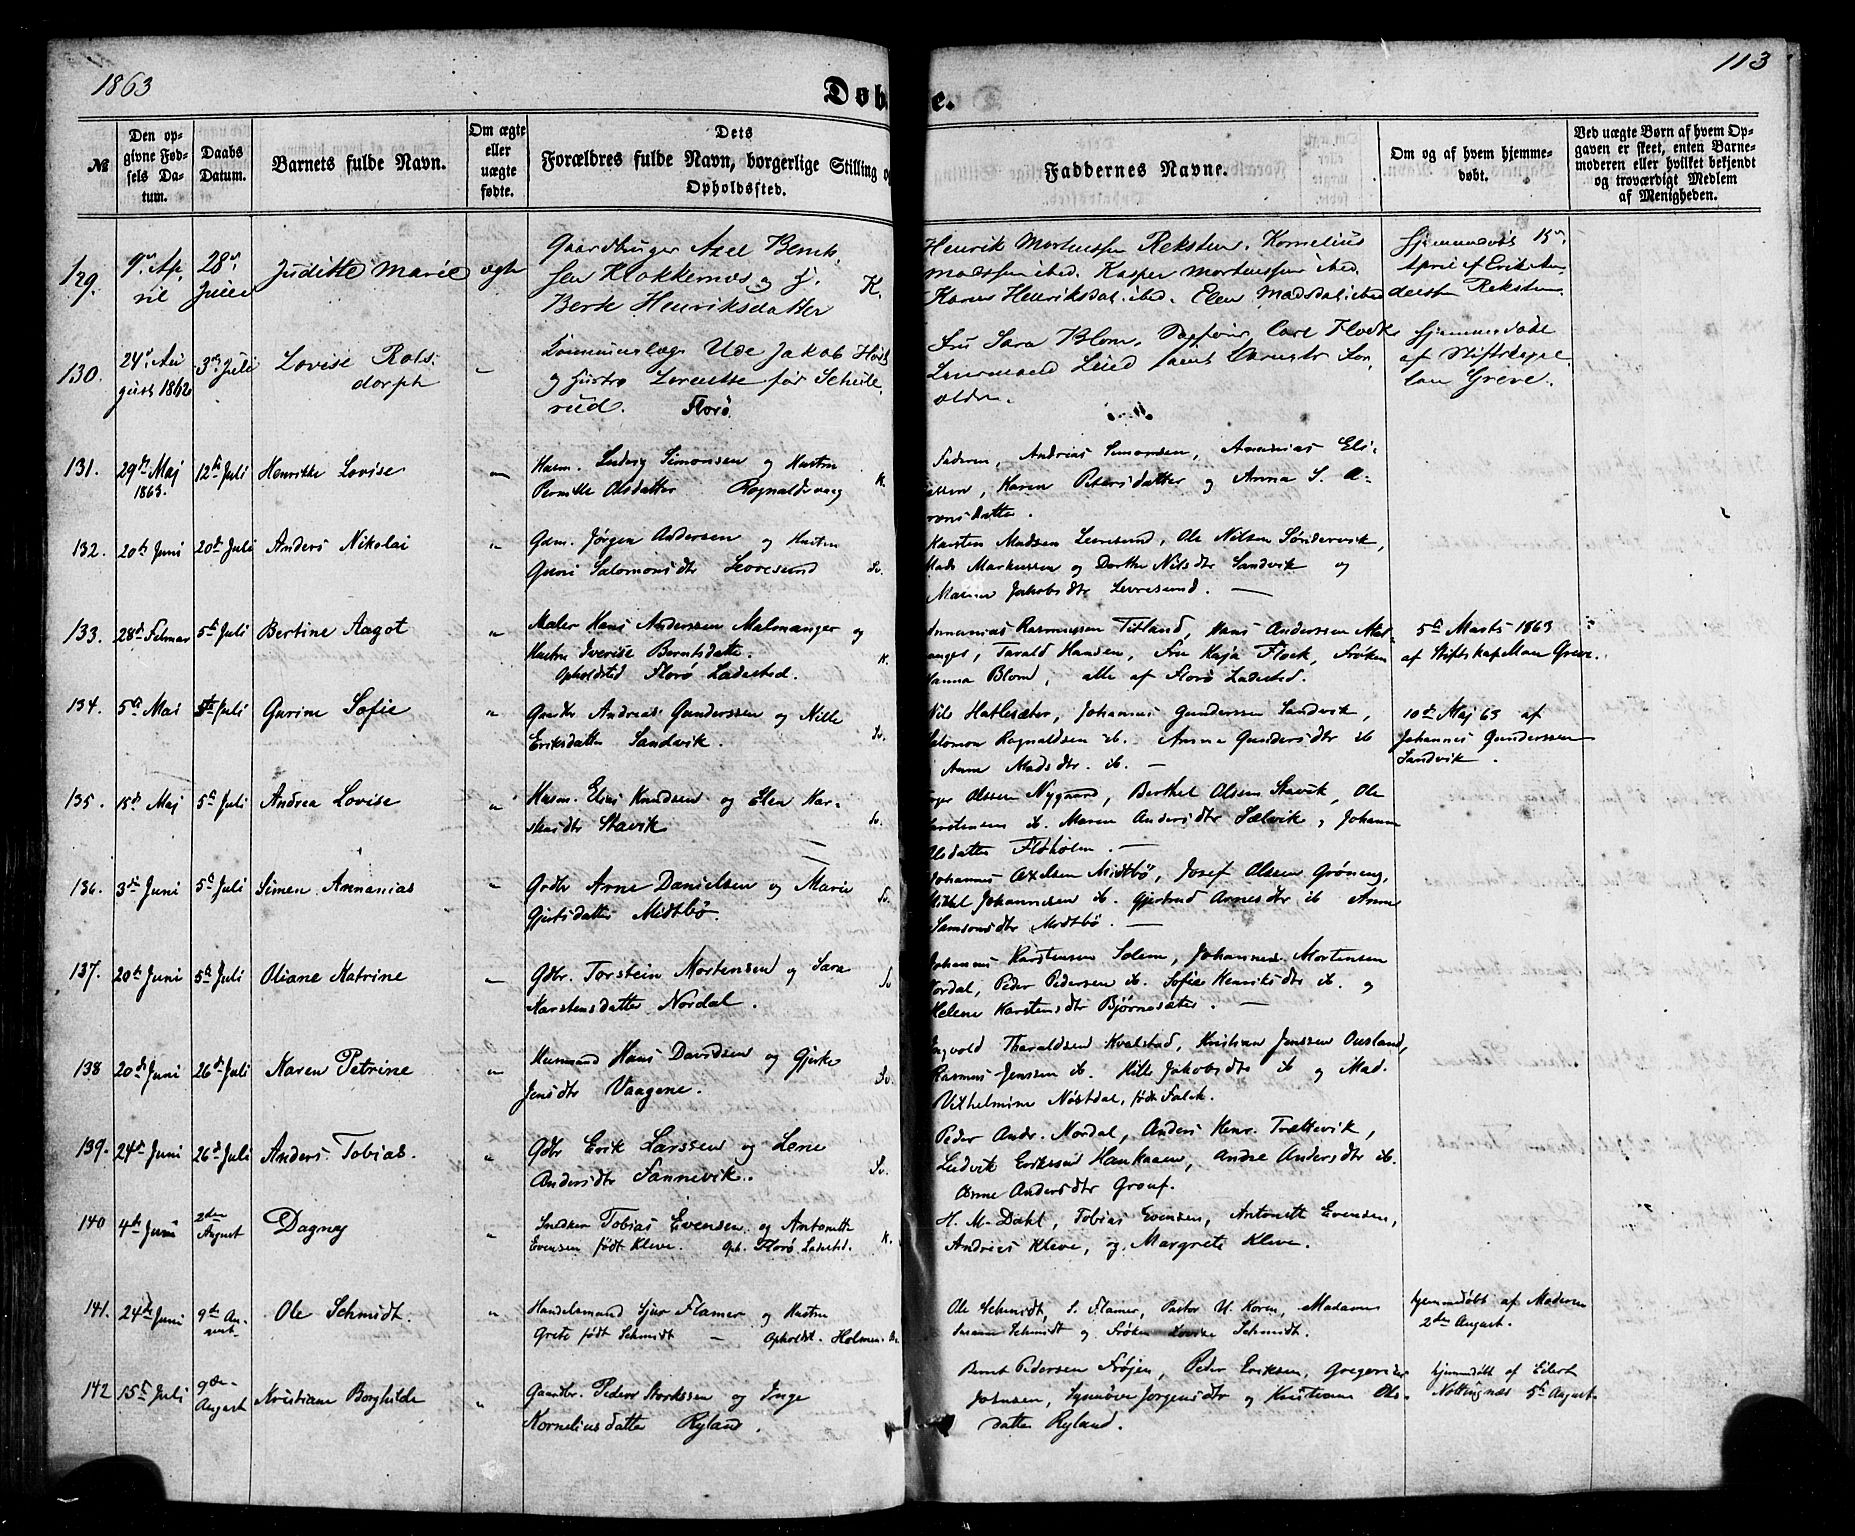 1863
113
Døb e.
№
Den op-
givne Fød-
sels Da-
tum.
Daabs
Datum.
Barnets fulde Navn.
Om ægte
eller
uægte
fødte.
Dets
Forældres fulde Navn, borgerlige Stilling o
Opholdssted.
Faddernes Navne.
Om og af hvem hjemme-
døbt.
Ved uægte Børn af hvem Op-
gaven er skeet, enten Barne-
moderen eller hvilket bekjendt
og troværdigt Medlem
af Menigheden.
129.
9de Ap-
ril
28de
Juni
Juditte Marie
ægte
Gaardbruger Axel Bernt-
sen Klokkernes og H.
Berte Henriksdatter
K.
Henrik Mortensen Reksten. Kornelius
Madssen ibed. Kasper Mortenssen ibed.
Karen Henriksdat. ibed. Elen Madsdat. ibed
Hjemmedøbt 15de
April af Erik An-
dersen Reksten.
130.
24de Au
gust 1862
3de Juli
Lovise Rols-
dorph
"
Kommunelæge Ude Jakob Høst
og Hustro Lorentse før Scheile-
rud. Florø
Fru Sara Blom. Carl Flock
Lensmand Lind samt
Hjemmedøbt
af Stiftskapel-
lan Greve.
131.
29de Maj
1863.
12te Juli
Henrikke Lovise
"
Husm. Ludvig Simonsen og Hustru
Pernille Olsdatter Rognaldsvaag
K.
Faderen, Andreas Simonsen, Ananias Eli-
assen, Karen Petersdatter og Anna S. A-
ronsdatter.
132.
20de Juni
20de Juli
Anders Nikolai
"
Gdm. Jørgen Andersen og Hustru
Guni Salomonsdtr Levresund
Sv.
Karsten Madsen Levresund, Ole Nilsen Søndervik,
Mads Markussen og Dorthe Nilsdtr Sandvik og
Maren Jakobsdtr Levresund. —
133.
28de Februar
5te Juli
Bertine Aagot
"
Maler Hans Anderssen Malmanger og
Hustru Iverine Berntsdatter.
Opholdsted Florø Ladested.
K.
Annanias Rasmussen Titland, Hans Anderssen Mal-
manger, Tarald Hansen, Fru Kaja Flock, Frøken
Hanna Blom, alle af Florø Ladested.
5te Marts 1863
af Stiftskapellan Greve.
134.
5te Mai
5te Juli
Gurine Sofie
"
Gaardbr Andreas Gunderssen og Nille
Eriksdatter Sandvik.
Sv.
Nils Hatlesæter, Johannes Gunderssen Sandvik,
Salomon Rognaldsen ib. Anna Gundersdtr ib
Anne Madsdtr. ib. —
10de Maj 63 af
Johannes Gunderssen
Sandvik.
135.
15de Maj
5te Juli
Andrea Lovise
"
Husm. Elias Knudsen og Elen Kar-
stensdtr Stavik
Sv.
Olssen Nygaard, Berthel Olsen Stavik, Ole
Karstensen ib. Maren Andersdtr Sælvik, Johanne
Olsdatter Fløholm. —
136.
3de Juni
5te Juli
Simen Annanias
"
Grdbr Arne Danielsen og Marie
Gjertsdatter Midtbø.
Sv.
Johannes Axelsen Midtbø, Josef Olssen Grøneng,
Mikkel Johannesen ib. Gjertrud Arnesdtr ib Anne
Samsonsdtr Midtbø. —
137.
20de Juni
5te Juli
Oliane Katrine
—
Gdbr. Torstein Mortensen og Sara
Karstensdatter Nordal.
Sv
Johannes Karstensen Solem, Johannes Mortensen
Nordal, Peder Pedersen ib. Sofie Henriksdtr ib. og
Helene Karstensdtr Bjørnesæter. —
138
20de Juni
26de Juli
Karen Petrine
"
Husmand Hans Davidsen og Gjerke
Jensdtr Vaagene.
Sv.
Ingvold Tharaldsen Kvalstad, Kristian Jenssen Ousland,
Rasmus Jenssen ib. Nille Jakobsdtr ib og Mad.
Vilhelmine Nøstdal, født Falck.
139.
24de Juni
26de Juli
Anders Tobias.
"
Gdbr Erik Larssen og Lene
Andersdtr Sannevik.
Sv.
Peder Andr. Nordal, Anders Henr. Trættevik,
Ludvik Erikssen Haukaaen, Andrea Andersdtr ib.
Anne Andersdtr Grouf.
140
4de Juni
2den
August
Dagny
"
Snedker Tobias Evensen og Antonette
Evensen født Kleve. Oph. Florø Ladested.
K.
H. M. Dahl, Tobias Evensen, Antonett Evensen,
Andreas Kleve, og Margrete Kleve.
141.
24de Juni
9de Au-
gust.
Ole Schmidt.
"
Handelsmand Sjur Flamer og Hustru
Grete født Schmidt — Opholdst. Holmen.
Ole Schmidt, S. Flamer, Pastor U. Koren, Madame
Susanne Schmidt og Frøken Lovise Schmidt.
hjemmedøbt af Moderen
2den August.
142
15de Juli
9de
August
Kristiane Borghilde
"
Gaardbr. Peder Storkssen og Inge
Korneliusdatter Ryland.
Bernt Pedersen Frøjen, Peder Eriksen, Gregorius
Johnsen, Synnøve Jørgensdtr og Kristiane Ols-
datter Ryland.
hjemmedøbt af Eilert
Nottingnæs 5te August